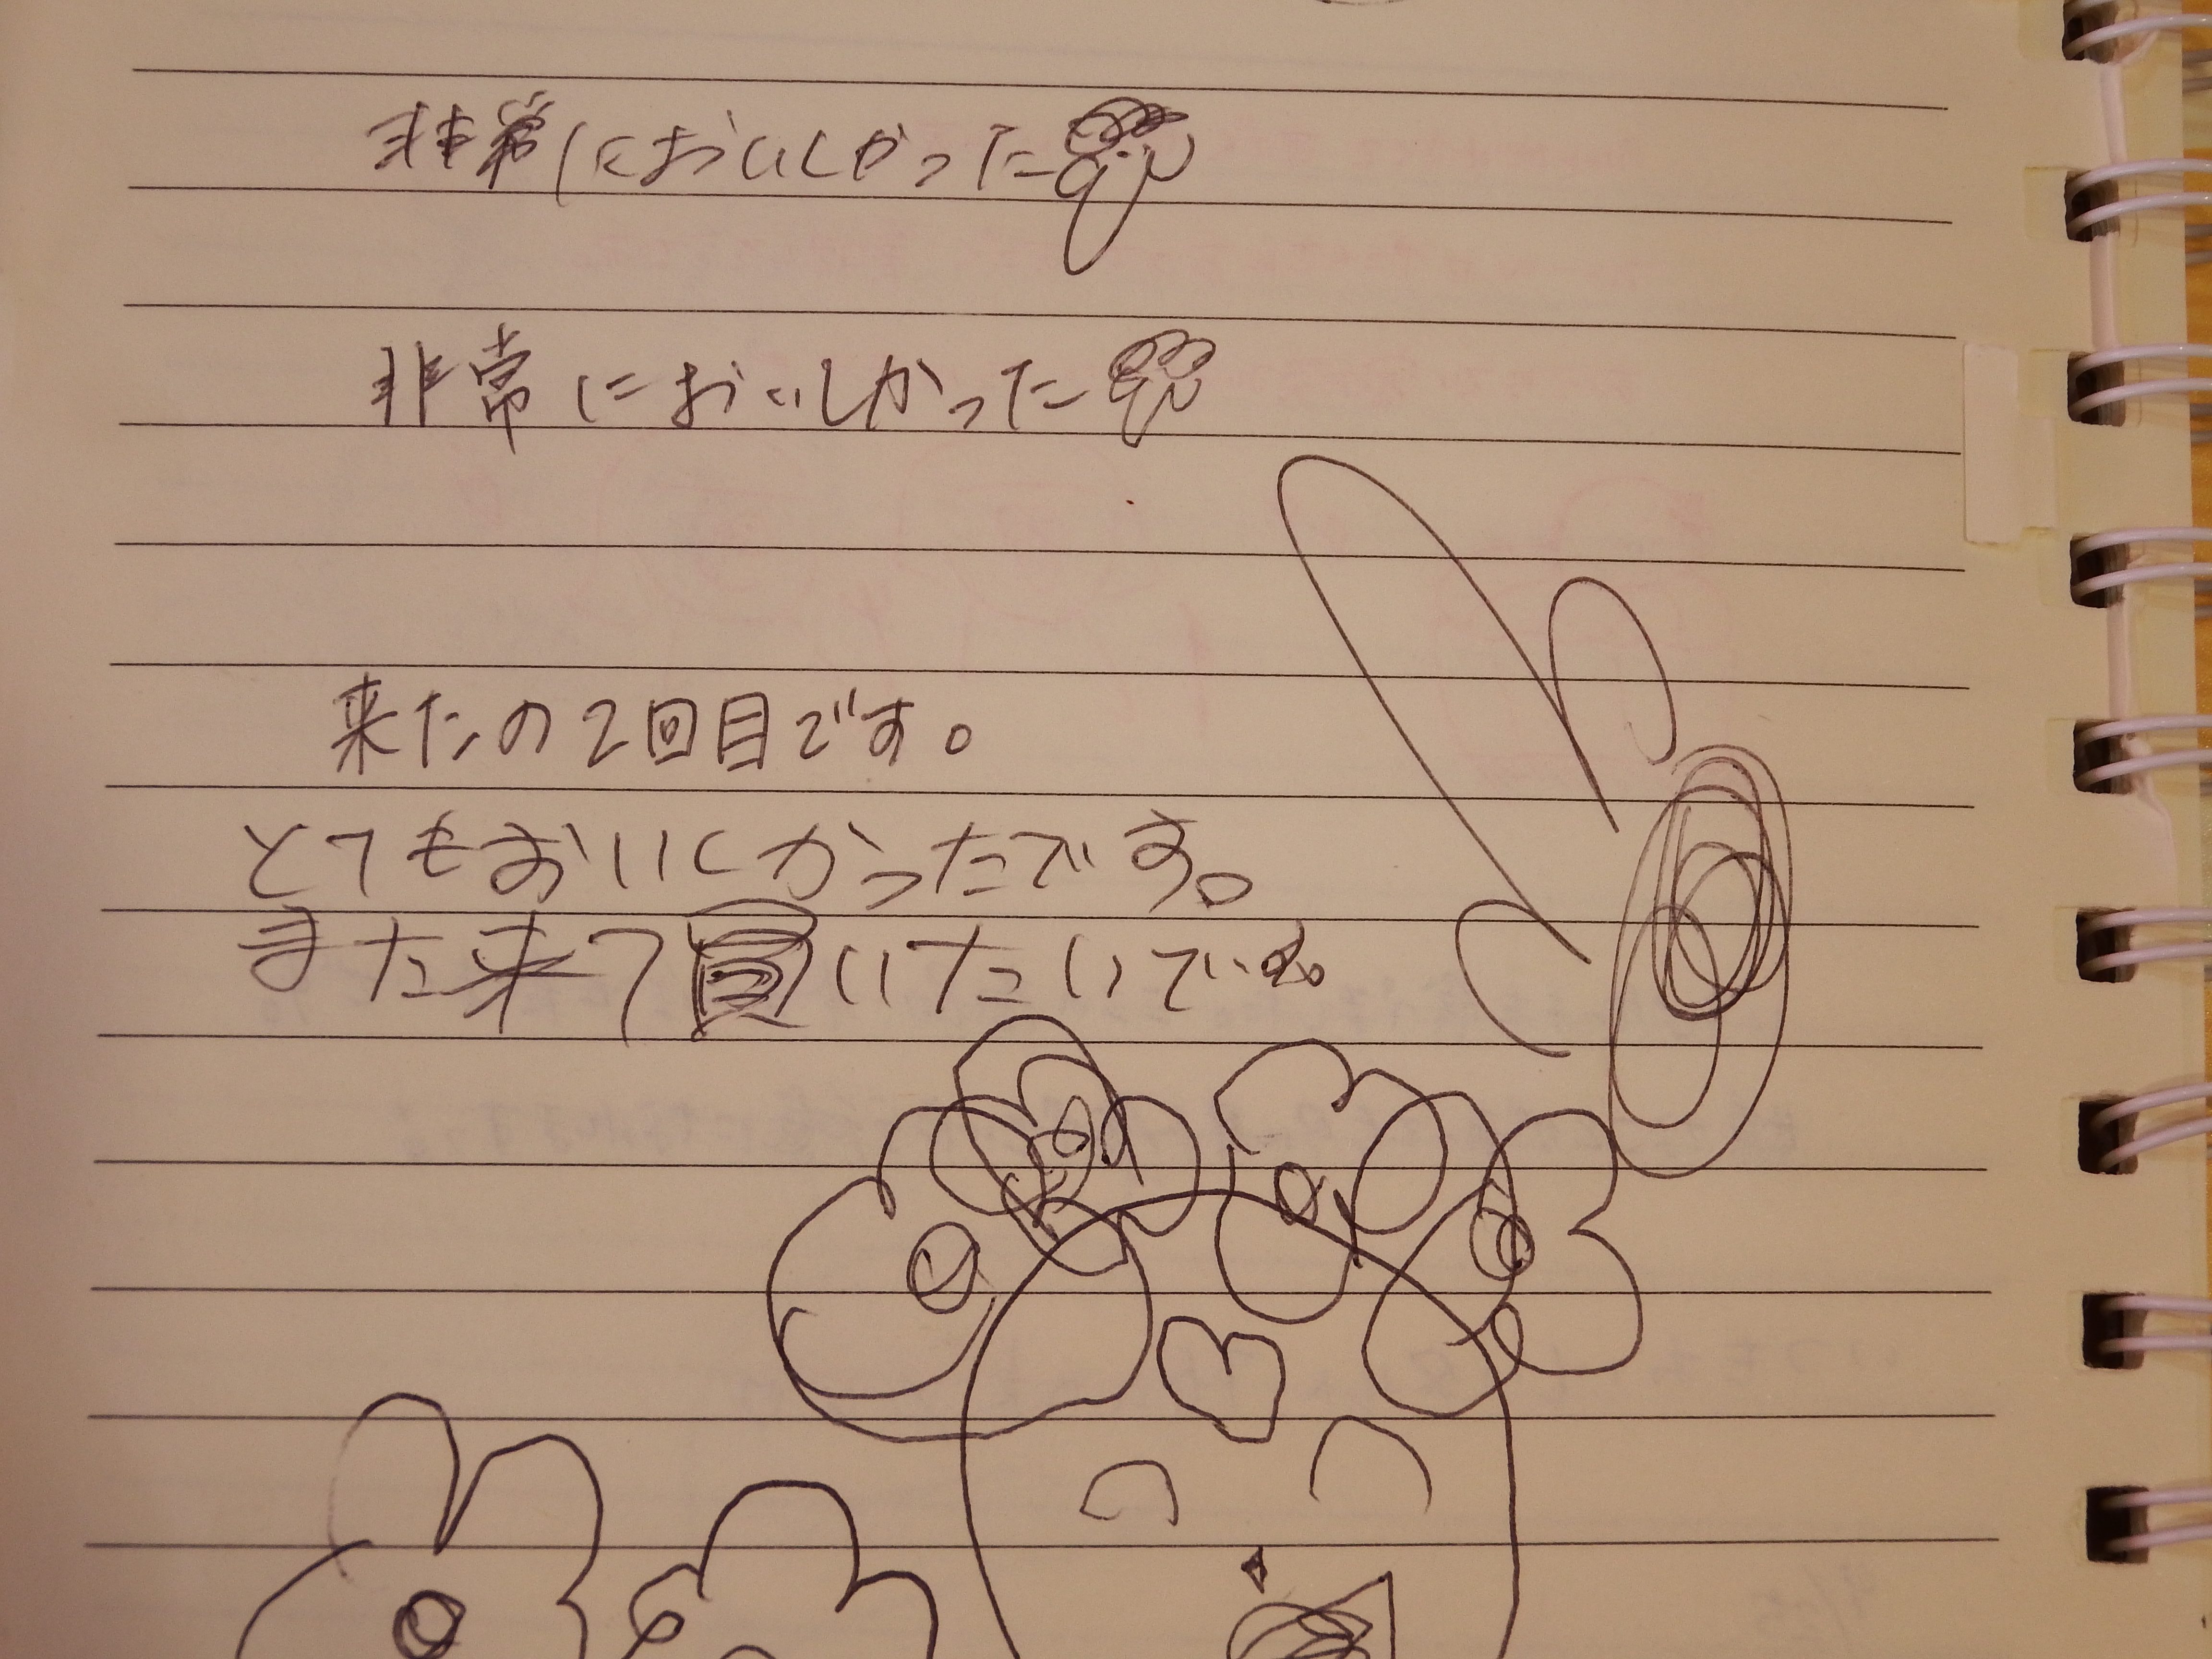 非常においしかった
非常においしかった
来たの2回目です。
とてもおいしかったです。
また来て買いたいです。